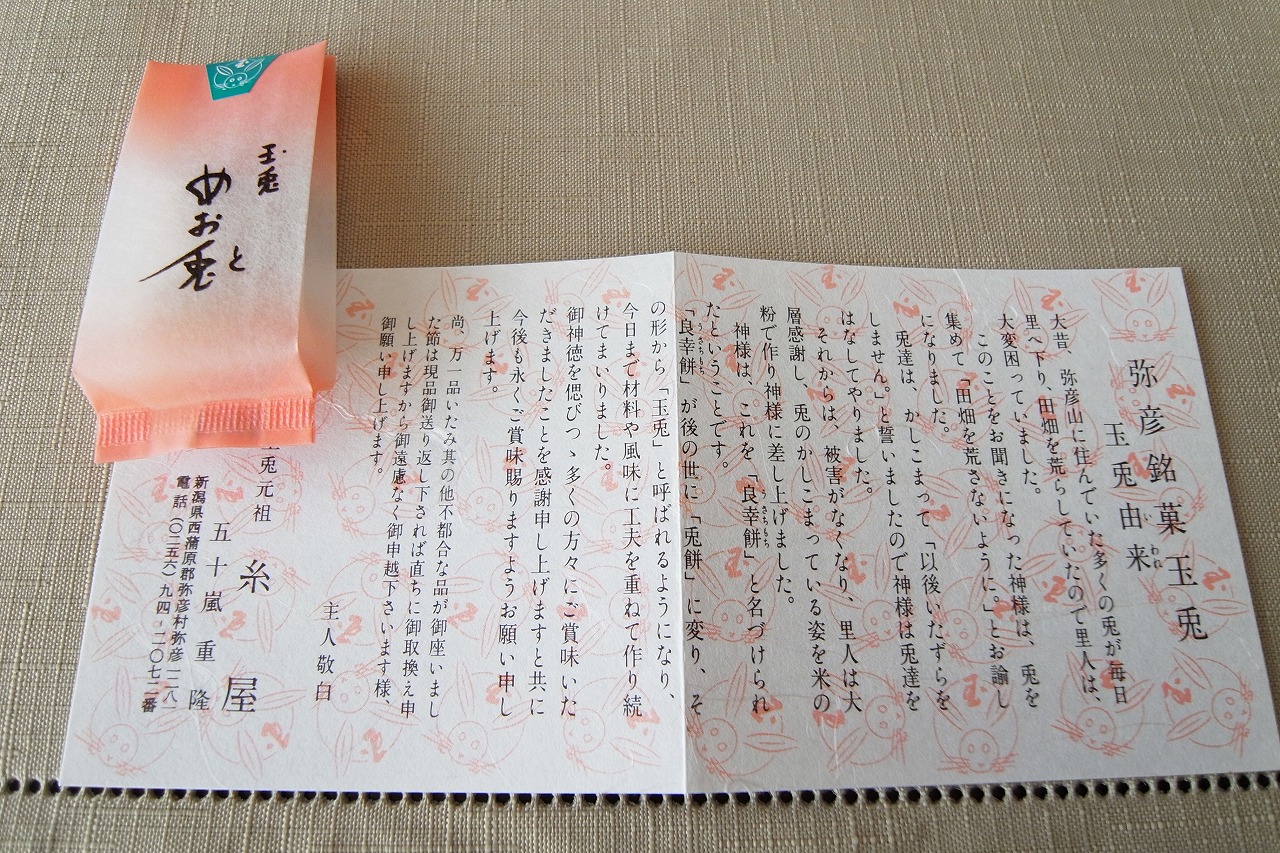 玉兎
めおと
兎
弥彦銘菓玉兎
玉兎由来
いわれ
大昔、弥彦山に住んでいた多くの兎が毎日
里へ下り、田畑を荒らしていたので里人は、
大変困っていました。
このことをお聞きになった神様は、兎を
集めて「田畑を荒さないように。」とお諭し
になりました。
兎達は、かしこまって「以後いたずらを
しません。」と誓いましたので神様は兎達を
はなしてやりました。
それからは、被害がなくなり、里人は大
層感謝し、兎のかしこまっている姿を米の
粉で作り神様に差し上げました。
神様は、これを「良幸餅」と名づけられ
うさちもち
たということです。
「良幸餅」が後の世に「兎餅」に変り、そ
うさちもち
の形から「玉兎」と呼ばれるようになり、
今日まで材料や風味に工夫を重ねて作り続
けてまいりました。
御神徳を偲びつゝ多くの方々にご賞味いた
だきましたことを感謝申し上げますと共に
今後も永くご賞味賜りますようお願い申し
上げます。
尚、万一品いたみ其の他不都合な品が御座いまし
た節は現品御送り返し下されば直ちに御取換え申
し上げますから御遠慮なく御申越下さいます様、
御願い申し上げます。
主人敬白
玉兎元祖
糸屋
五十嵐重隆
新潟県西蒲原郡弥彦村弥彦一二八一
電話(〇二五六)九四-二〇七二番